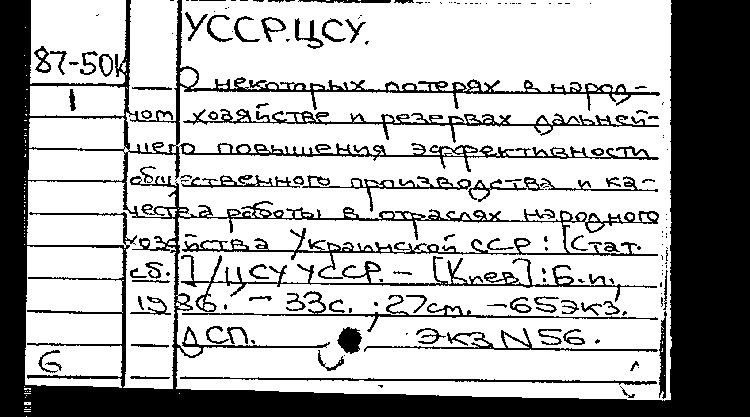 УССР.ЦСУ.
87-50К
О некоторых потерях в народ-
1
ном хозяйстве и резервах дальней-
шего повышения эффективности
общественного производства и ка-
чества работы в отраслях народного
хозяйства Украинской ССР: [Стат.
сб.]/ЦСУ УССР. – [Киев]: Б.и.,
1986. – 33с.; 27см. – 65экз.
ДСП. Экз N 56.
6